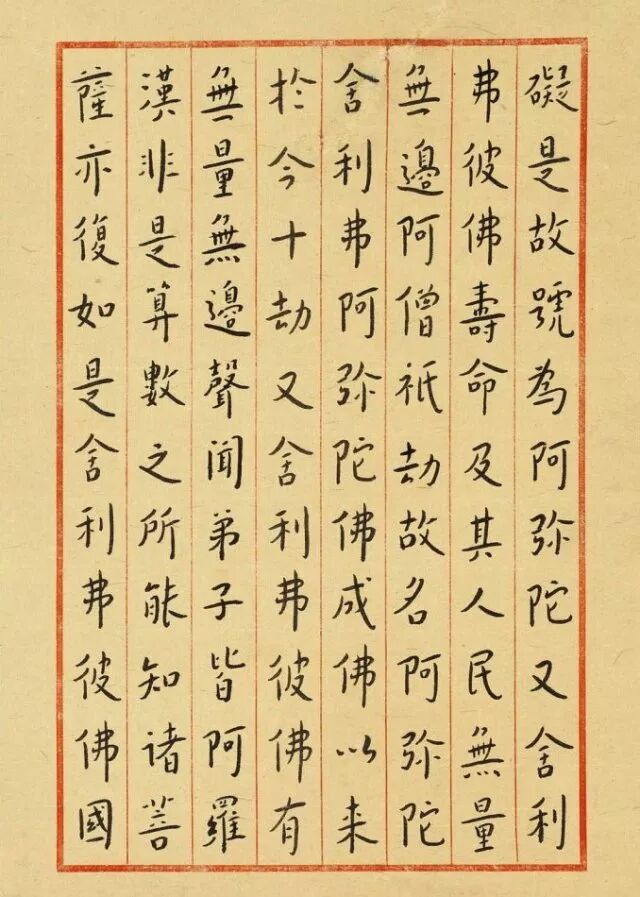 礙是故號為阿弥陀又舍利
弗彼佛壽命及其人民無量
無邊阿僧祇劫故名阿弥陀
舍利弗阿弥陀佛成佛以来
於今十劫又舍利弗彼佛有
無量無邊聲聞弟子皆阿羅
漢非是算數之所能知诸菩
薩亦復如是舍利弗彼佛國